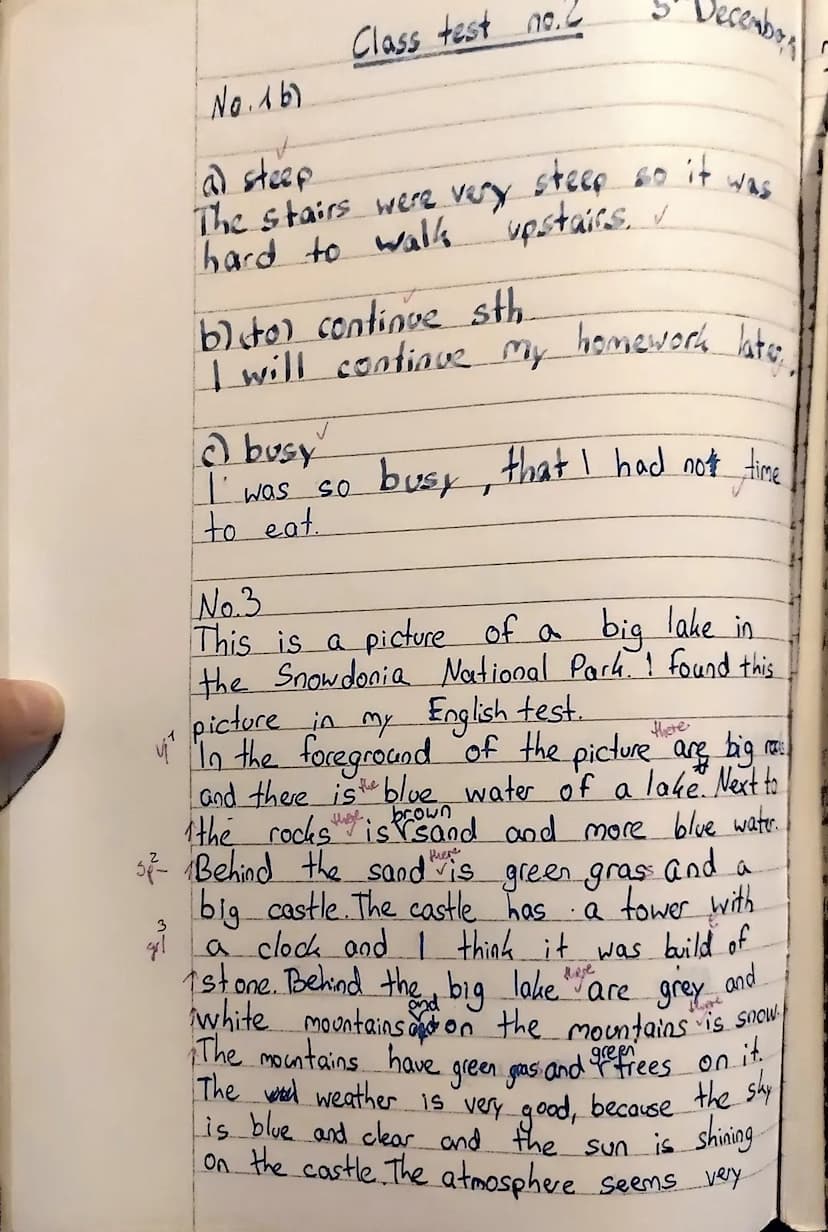 Class test no.2 5 December
No. 1b)
a) steep
The stairs were very steep so it was
hard to walk upstairs.
b) (to) continue sth
I will continue my homework later.
c) busy
I was so busy, that I had not time
to eat.
No.3
This is a picture of a big lake in
the Snowdonia National Park. I found this
picture in my English test.
there
In the foreground of the picture are big
and there is the blue water of a lake. Next to
there brown
the rocks is sand and more blue water.
there
Sp 2 Behind the sand is green grass and a
big castle. The castle has a tower with
3
gr a clock and I think it was build of
there
stone. Behind the big lake are grey and
and there
white mountains on the mountains is snow.
green
The mountains have green gras and trees on it.
The weather is very good, because the sky
is blue and clear and the sun is shining
on the castle. The atmosphere seems very